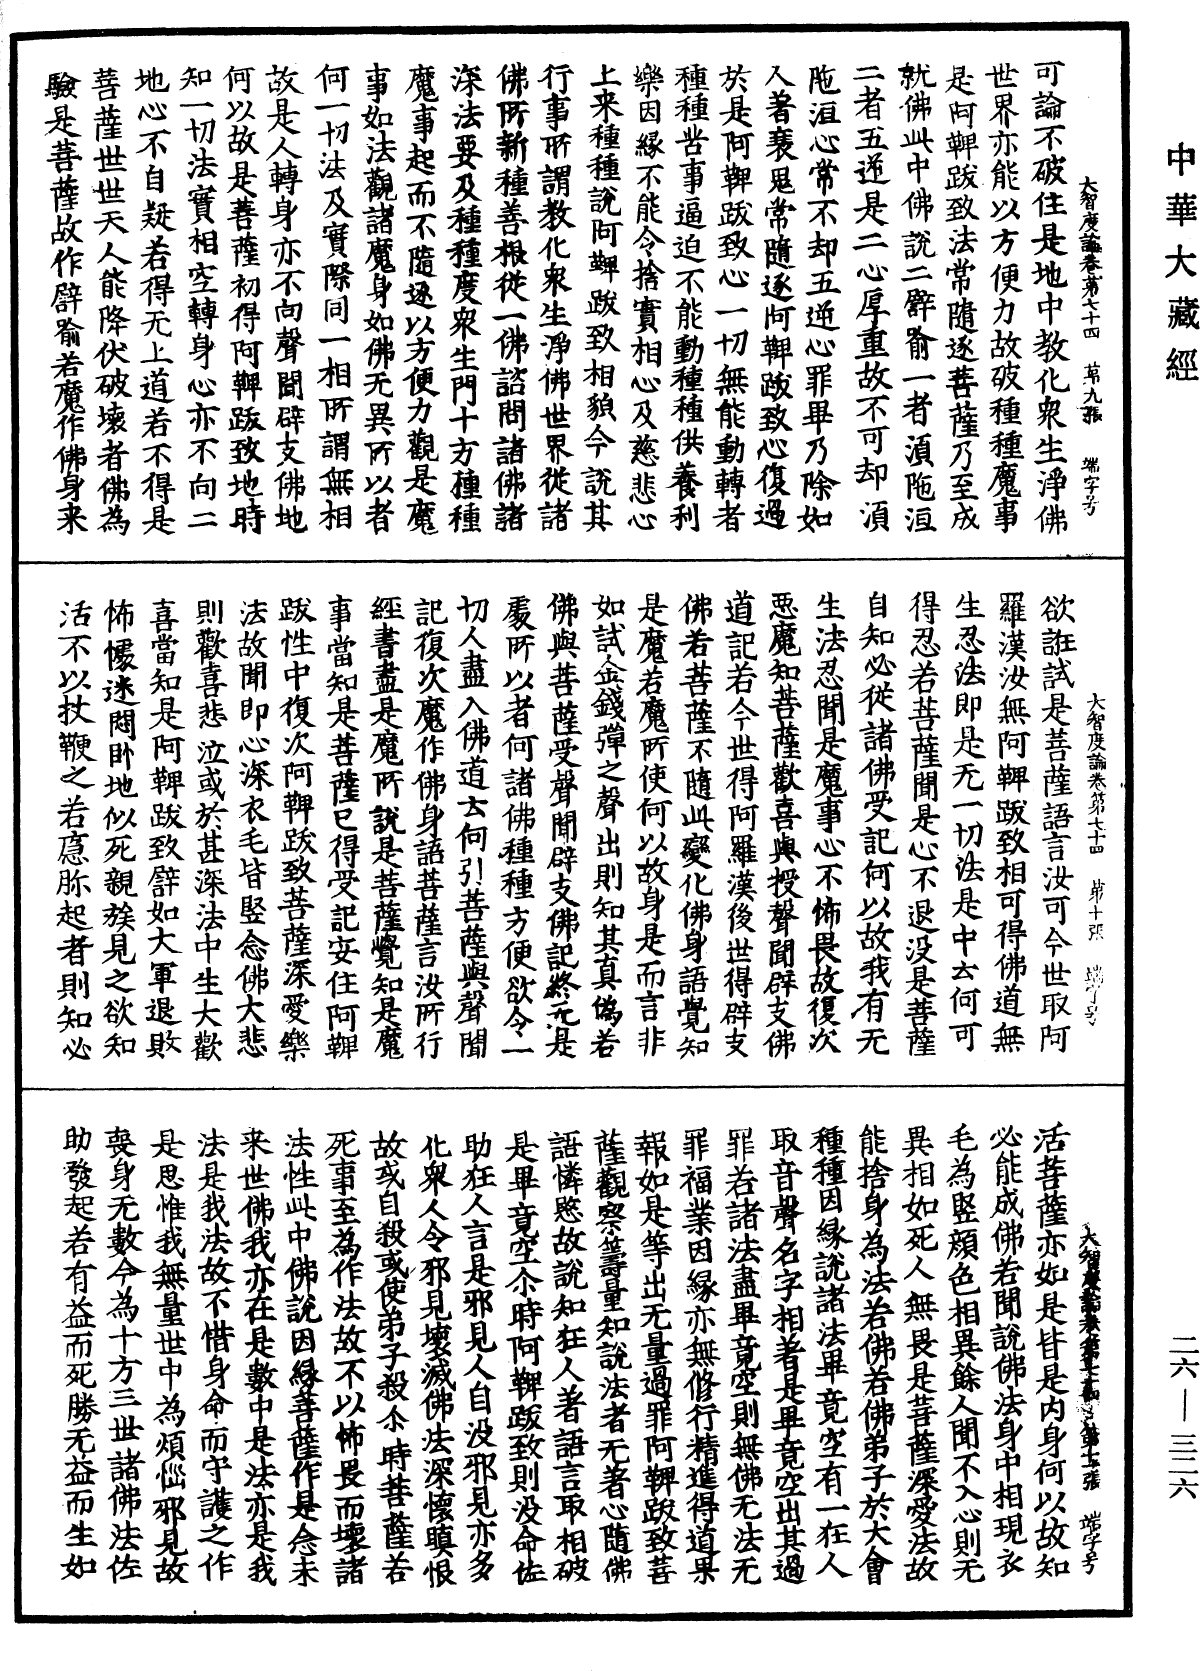 中華大藏經
二六—三二六
大智度論卷第七十四　第九張　端字号
可論不破住是地中教化衆生淨佛
世界亦能以方便力故破種種魔事
是阿鞞跋致法常隨逐菩薩乃至成
就佛此中佛說二譬喻一者湏陁洹
二者五逆是二心厚重故不可却湏
陁洹心常不却五逆心罪畢乃除如
人著襄鬼常隨逐阿鞞跋致心復過
於是阿鞞跋致心一切無能動轉者
種種苦事逼迫不能動種種供養利
樂因緣不能令捨實相心及慈悲心
上来種種說阿鞞跋致相貌今說其
行事所謂教化衆生淨佛世界從諸
佛所新種善根從一佛諮問諸佛諸
深法要及種種度衆生門十方種種
魔事起而不隨逐以方便力觀是魔
事如法觀諸魔身如佛无異所以者
何一切法及實際同一相所謂無相
故是人轉身亦不向聲聞辟支佛地
何以故是菩薩初得阿鞞跋致地時
知一切法實相空轉身心亦不向二
地心不自疑若得无上道若不得是
菩薩世世天人能降伏破壞者佛為
驗是菩薩故作譬喻若魔作佛身来
大智度論卷第七十四　第十張　端字号
欲誑試是菩薩語言汝可今世取阿
羅漢汝無阿鞞跋致相可得佛道無
生忍法即是无一切法是中云何可
得忍若菩薩聞是心不退没是菩薩
自知必從諸佛受記何以故我有无
生法忍聞是魔事心不怖畏故復次
惡魔知菩薩歡喜與授聲聞辟支佛
道記若今世得阿羅漢後世得辟支
佛若菩薩不隨此變化佛身語覺知
是魔若魔所使何以故身是而言非
如試金錢彈之聲出則知其真偽若
佛與菩薩受聲聞辟支佛記終无是
處所以者何諸佛種種方便欲令一
切人盡入佛道云何引菩薩與聲聞
記復次魔作佛身語菩薩言汝所行
經書盡是魔所說是菩薩覺知是魔
事當知是菩薩已得受記安住阿鞞
跋性中復次阿鞞跋致菩薩深愛樂
法故聞即心深衣毛皆竪念佛大悲
則歡喜悲泣或於甚深法中生大歡
喜當知是阿鞞跋致譬如大軍退敗
怖懅迷悶卧地似死親族見之欲知
活不以杖鞭之若癮胗起者則知必
大智度論卷第七十四　第十一張　端字号
活菩薩亦如是皆是内身何以故知
必能成佛若聞說佛法身中相現衣
毛為竪顔色相異餘人聞不入心則无
異相如死人無畏是菩薩深愛法故
能捨身為法若佛若佛弟子於大會
種種因緣說諸法畢竟空有一狂人
取音聲名字相著是畢竟空出其過
罪若諸法盡畢竟空則無佛无法无
罪福業因緣亦無修行精進得道果
報如是等出无量過罪阿鞞跋致菩
薩觀察籌量知說法者无著心隨佛
語憐愍故說知狂人著語言取相破
是畢竟空尒時阿鞞跋致則没命佐
助狂人言是邪見人自没邪見亦多
化衆人令邪見壞滅佛法深懷瞋恨
故或自殺或使弟子殺尒時菩薩若
死事至為作法故不以怖畏而壞諸
法性此中佛說因緣菩薩作是念未
来世佛我亦在是數中是法亦是我
法是我法故不惜身命而守護之作
是思惟我無量世中為煩惱邪見故
喪身无數今為十方三世諸佛法佐
助發起若有益而死勝无益而生如